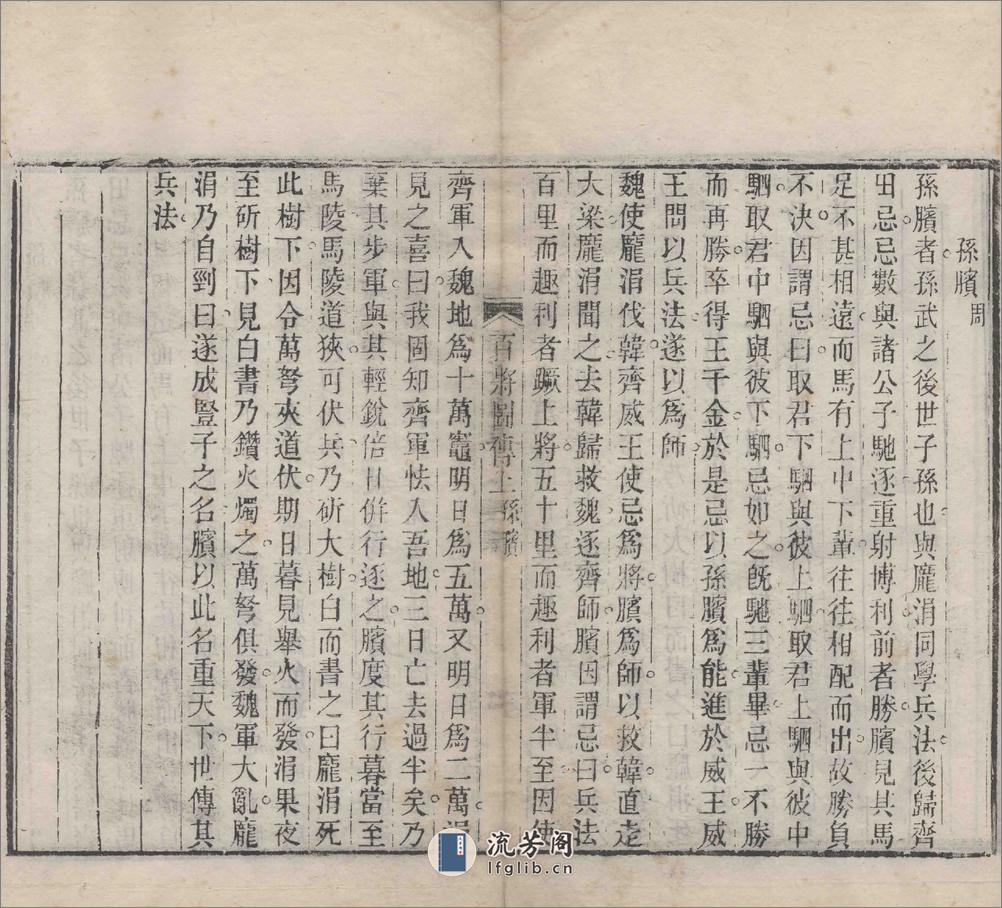 孫臏周
孫臏者孫武之後世子孫也與龐涓同學兵法後歸齊
田忌忌數與諸公子馳逐重射博利前者勝臏見其馬
足不甚相遠而馬有上中下輩往往相配而出故勝負
不決因謂忌曰取君下駟與彼上駟取君上駟與彼中
駟取君中駟與彼下駟忌如之旣馳三輩畢忌一不勝
而再勝卒得王千金於是忌以孫臏爲能進於威王威
王問以兵法遂以爲師
魏使龐涓伐韓齊威王使忌爲將臏爲師以救韓直走
大梁龐涓聞之去韓歸救魏逐齊師臏因謂忌曰兵法
百里而趣利者蹶上將五十里而趣利者軍半至因使
百將圖傳上孫臏
齊軍入魏地爲十萬竈明日爲五萬又明日爲二萬涓
見之喜曰我固知齊軍怯入吾地三日亡去過半矣乃
棄其步軍與其輕銳倍日併行逐之臏度其行暮當至
馬陵馬陵道狹可伏兵乃斫大樹白而書之曰龐涓死
此樹下因令萬弩夾道伏期日暮見舉火而發涓果夜
至斫樹下見白書乃鑽火燭之萬弩俱發魏軍大亂龐
涓乃自剄曰遂成豎子之名臏以此名重天下世傳其
兵法
流芳閣
lfglib.cn